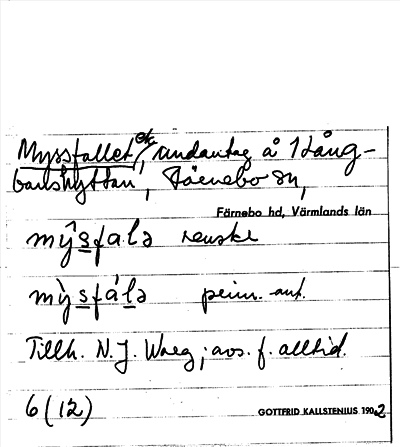 Myssfallet etc, undantag å 1 Lång-
banshyttan, Färnebo sn,
Färnebo hd, Värmlands län
mŷsfalə renske
mỳsfálə peinr. ant.
Tillh. N. J. Waeg; avs. f. alltid.
6 (12)
GOTTFRID KALLSTENIUS 1902